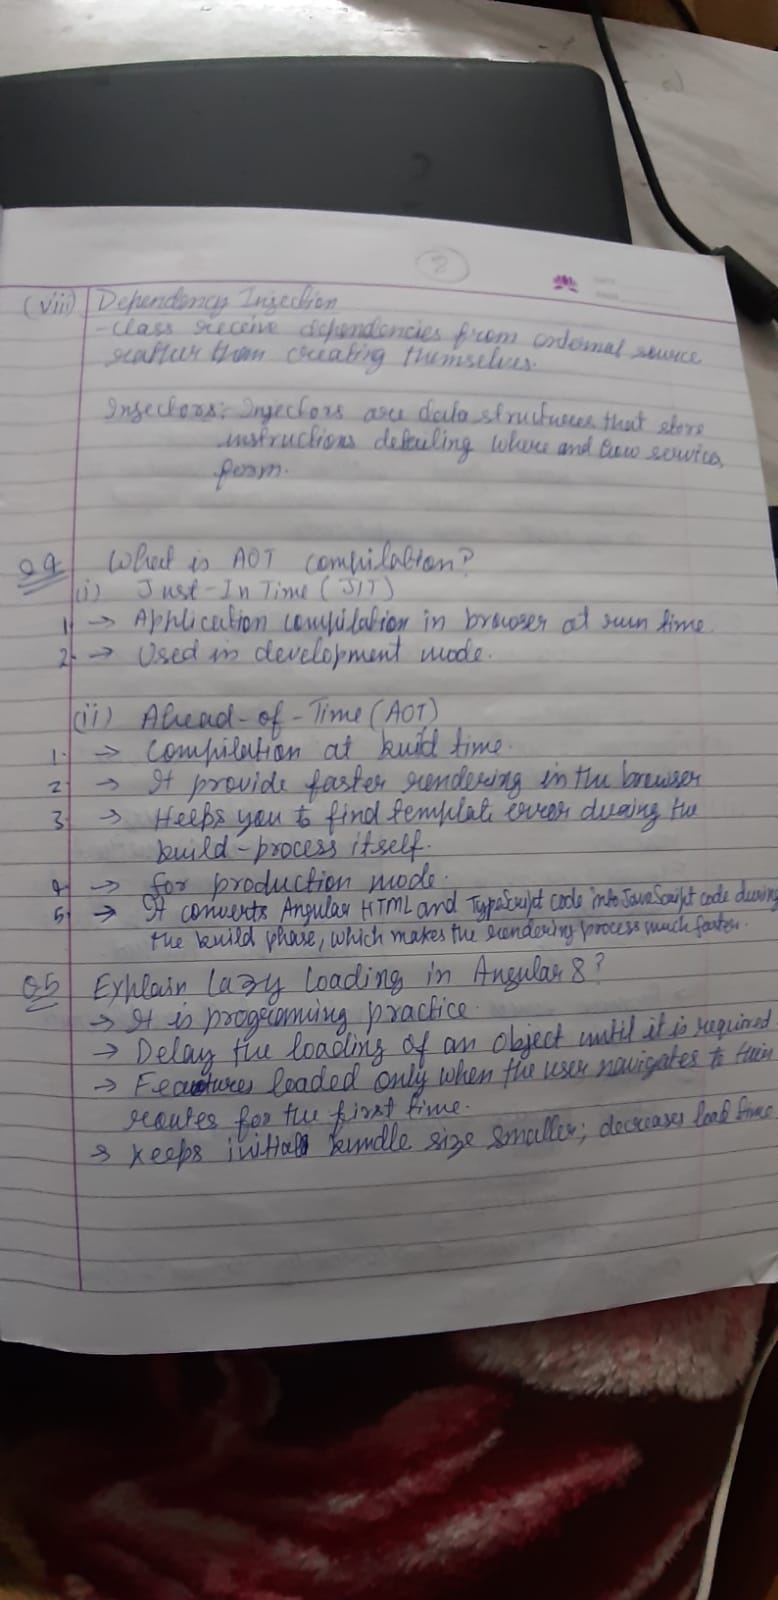 2
(viii) Dependency Injection
- Class receive dependencies from external source
rather than creating themselves.
Injectors: Injectors are data structures that store
instructions detailing where and how services
form.
Q4 What is AOT compilation?
(i) Just-In Time (JIT)
1. → Application compilation in browser at run time.
2. → Used in development mode.
(ii) Ahead-of-Time (AOT)
1. → Compilation at build time.
2. → It provide faster rendering in the browser
3. → Helps you to find template error during the
build-process itself.
4. → for production mode.
5. → It converts Angular HTML and TypeScript code into JavaScript code during
the build phase, which makes the rendering process much faster.
Q5 Explain lazy loading in Angular 8?
→ It is programing practice.
→ Delay the loading of an object until it is required
→ Features loaded only when the user navigates to their
routes for the first time.
→ keeps initial bundle size smaller; decreases load time.